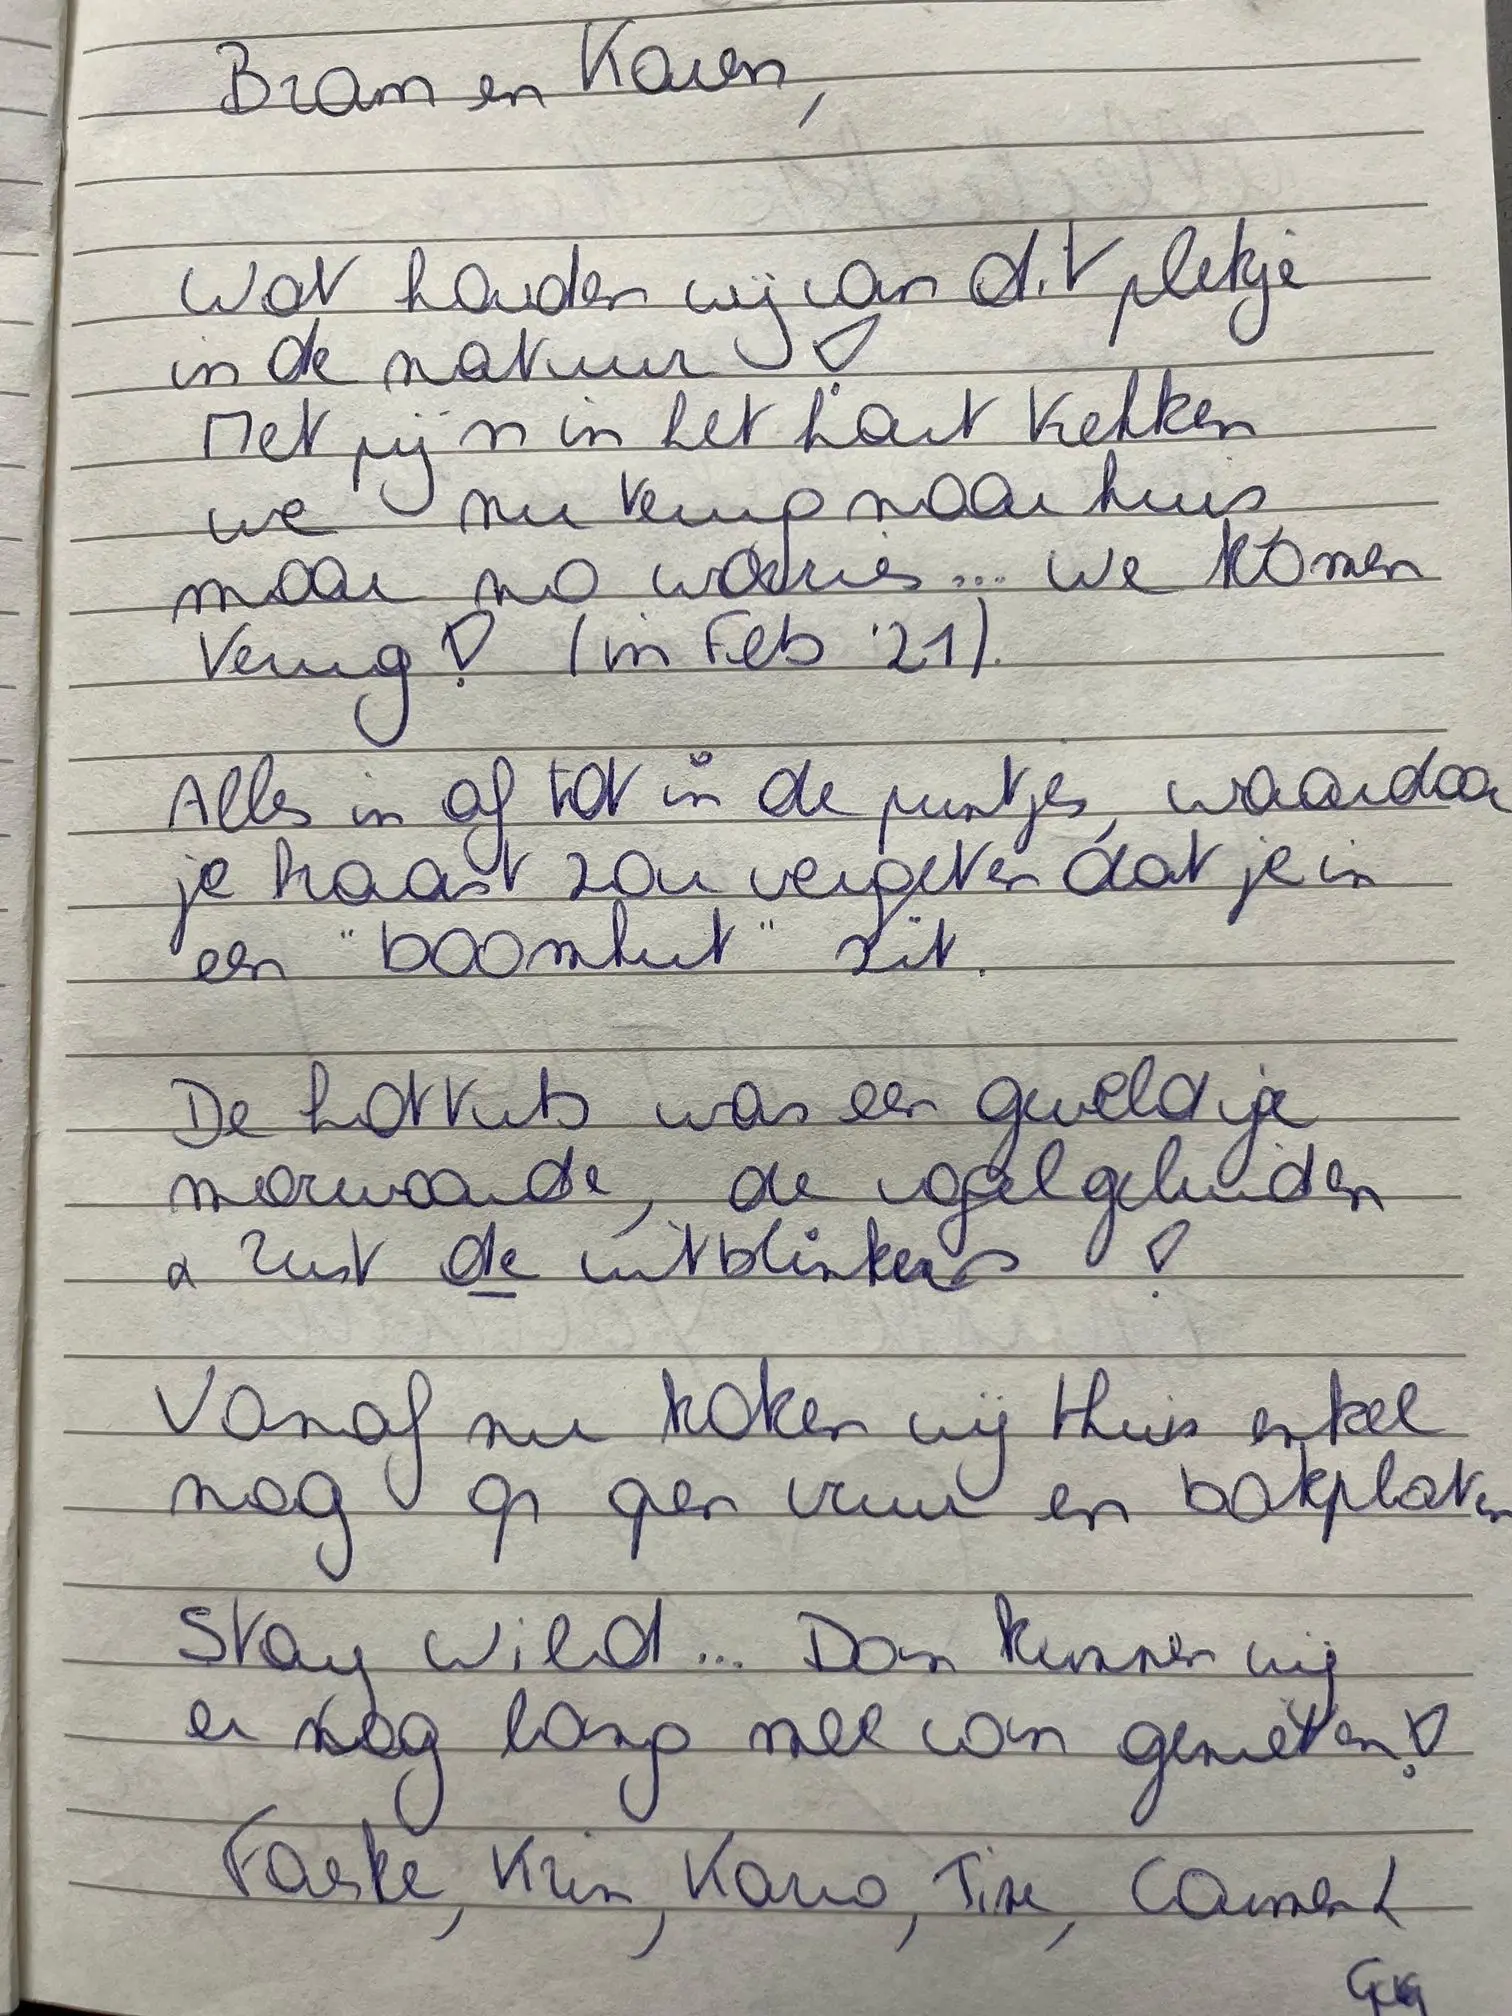 Bram en Karen,
Wat houden wij van dit plekje
in de natuur!
Met pijn in het hart trekken
we nu terug naar huis
maar no worries... we komen
terug! (in Feb '21).
Alles in af tot in de puntjes, waardoor
je haast zou vergeten dat je in
een "boomhut" zit.
De hottub was een geweldige
meerwaarde, de vogelgeluiden
& rust de uitblinkers!
Vanaf nu koken wij thuis enkel
nog op gen vuur en bakplaten
Stay wild... Dan kunnen wij
er nog lang mee van genieten!
Faske, Krin, Karo, Tine,